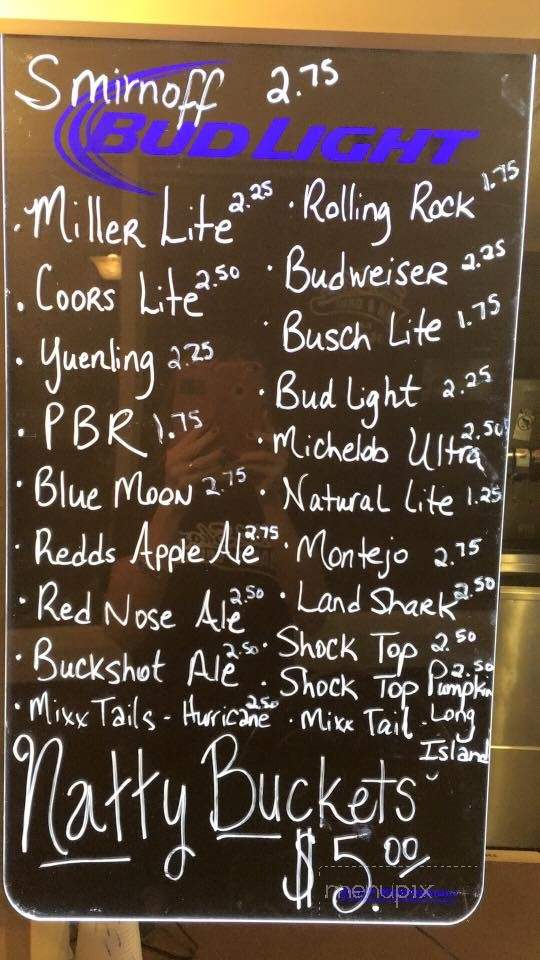 Smirnoff 2.75
BUD LIGHT
· Miller Lite 2.25
· Coors Lite 2.50
· Yuenling 2.25
· PBR 1.75
· Blue Moon 2.75
· Redds Apple Ale 2.75
· Red Nose Ale 2.50
· Buckshot Ale 2.50
· Mixx Tails - Hurricane 2.50
· Rolling Rock 1.75
· Budweiser 2.25
· Busch Lite 1.75
· Bud Light 2.25
· Michelob Ultra 2.50
· Natural Lite 1.25
· Montejo 2.75
· Land Shark 2.50
· Shock Top 2.50
· Shock Top Pumpkin 2.50
· Mixx Tail - Long
Island
Natty Buckets
$5.00
menupix